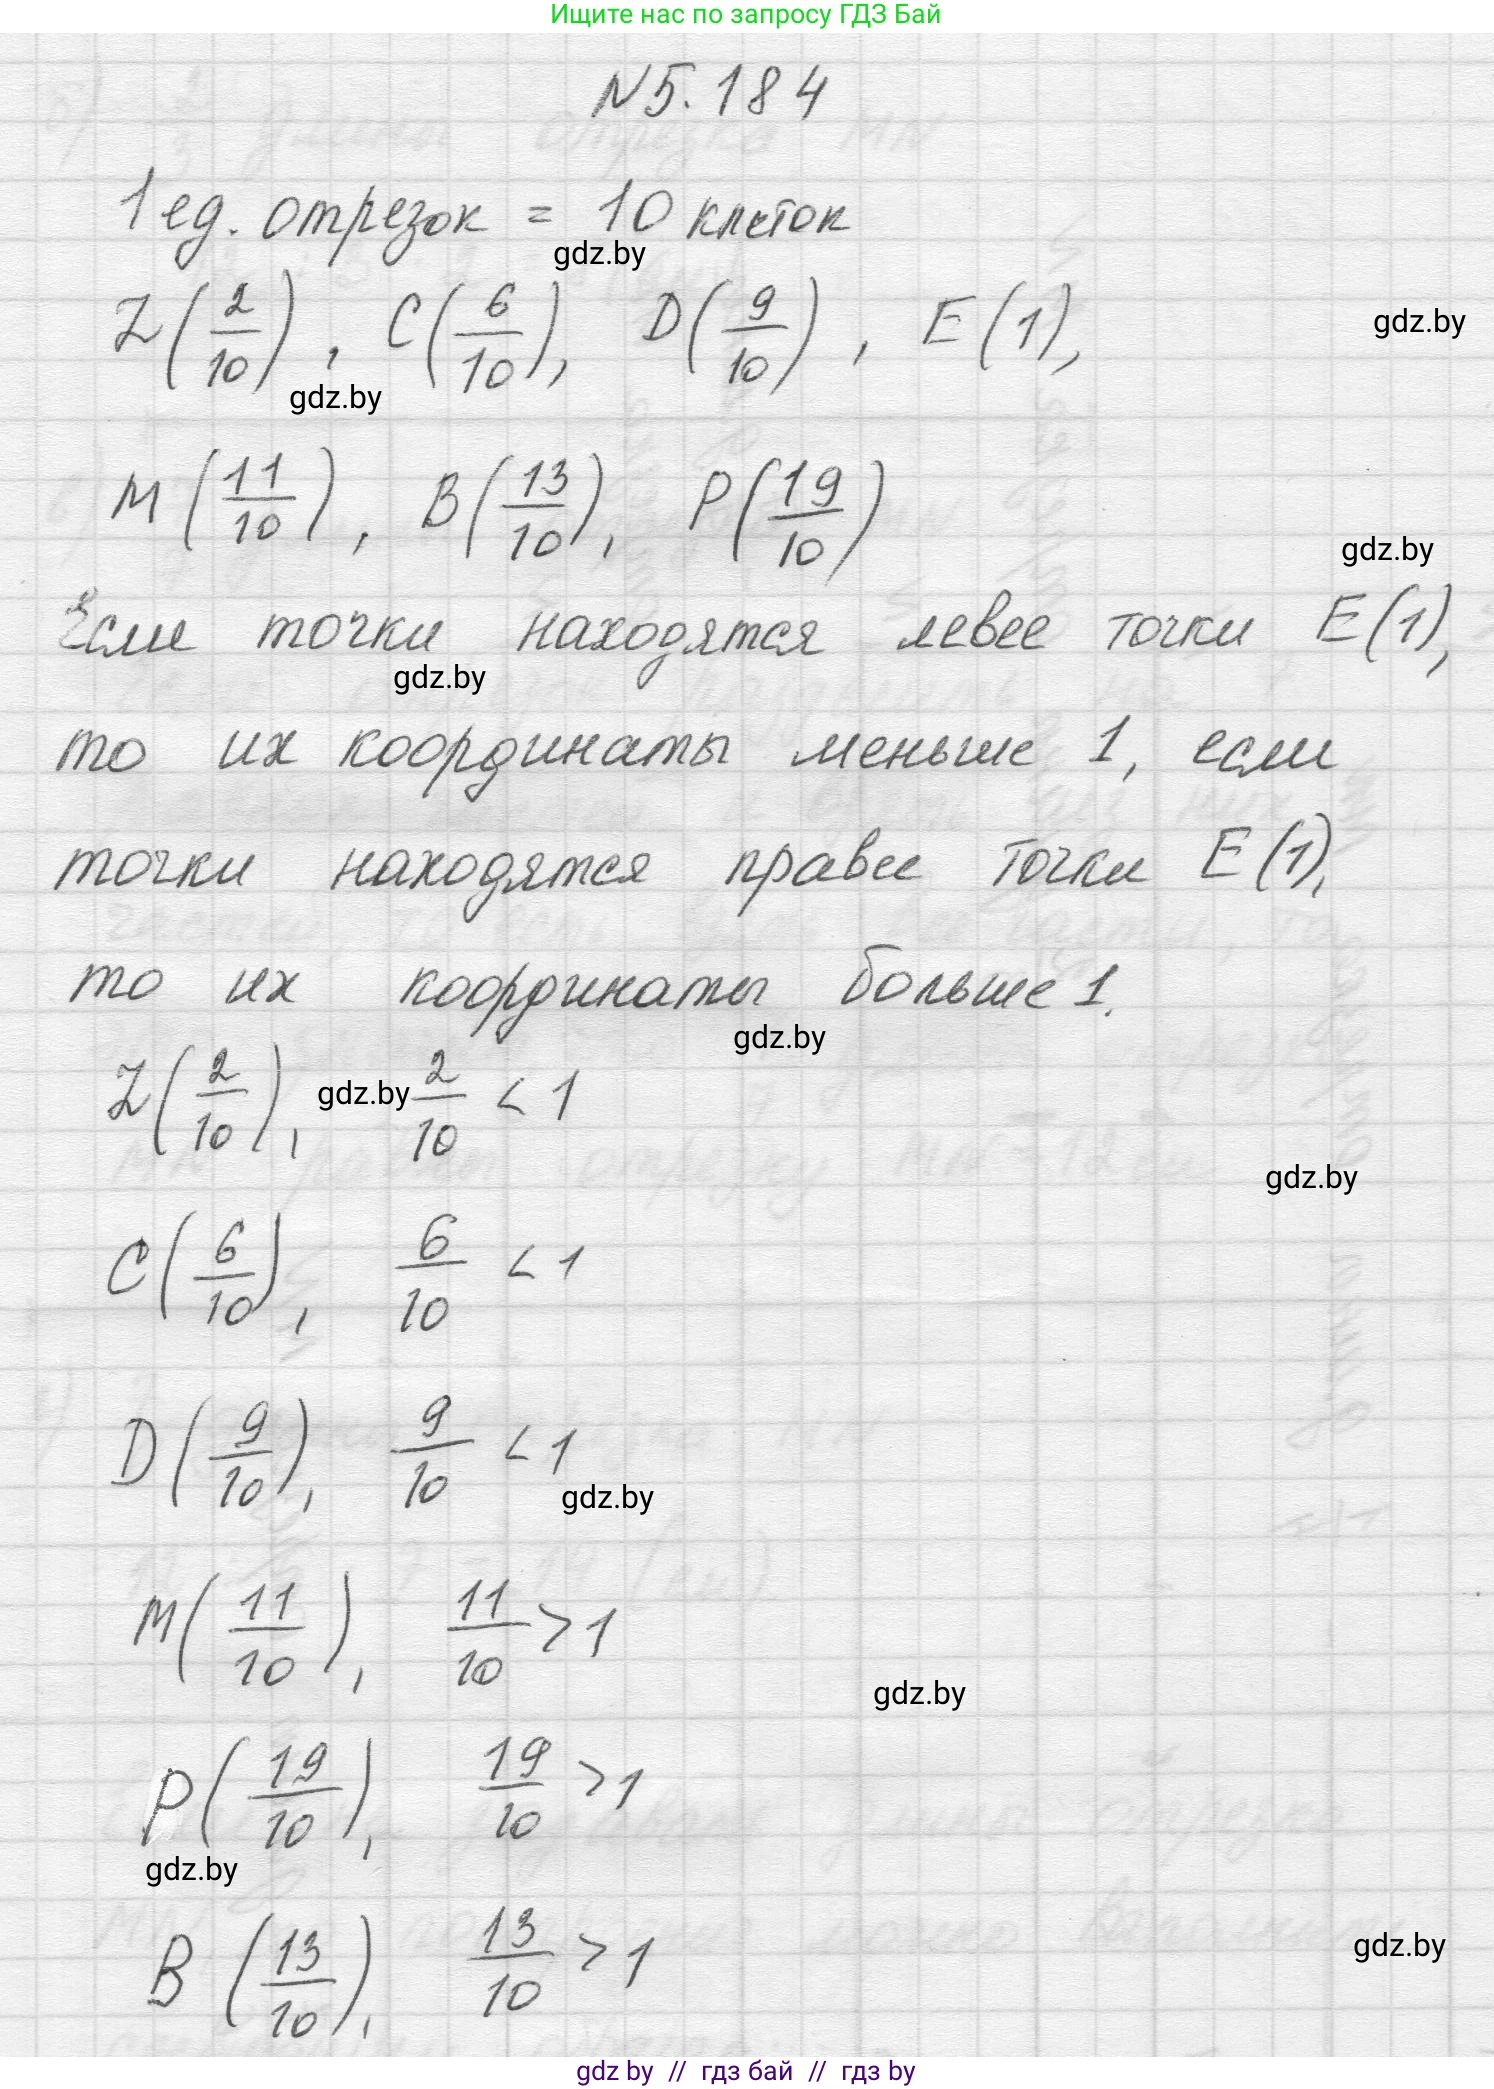 Ищите нас по запросу ГДЗ Бай
N5.184
1 ед. отрезок = 10 клеток
gdz.by
Z(2/10), C(6/10), D(9/10), E(1),
gdz.by
gdz.by
M(11/10), B(13/10), P(19/10)
gdz.by
Если точки находятся левее точки E(1),
gdz.by
то их координаты меньше 1, если
точки находятся правее точки E(1),
то их координаты больше 1.
gdz.by
Z(2/10), 2/10 < 1
gdz.by
gdz.by
C(6/10), 6/10 < 1
D(9/10), 9/10 < 1
gdz.by
M(11/10), 11/10 > 1
gdz.by
P(19/10), 19/10 > 1
gdz.by
B(13/10), 13/10 > 1
gdz.by
gdz by // гдз бай // гдз by